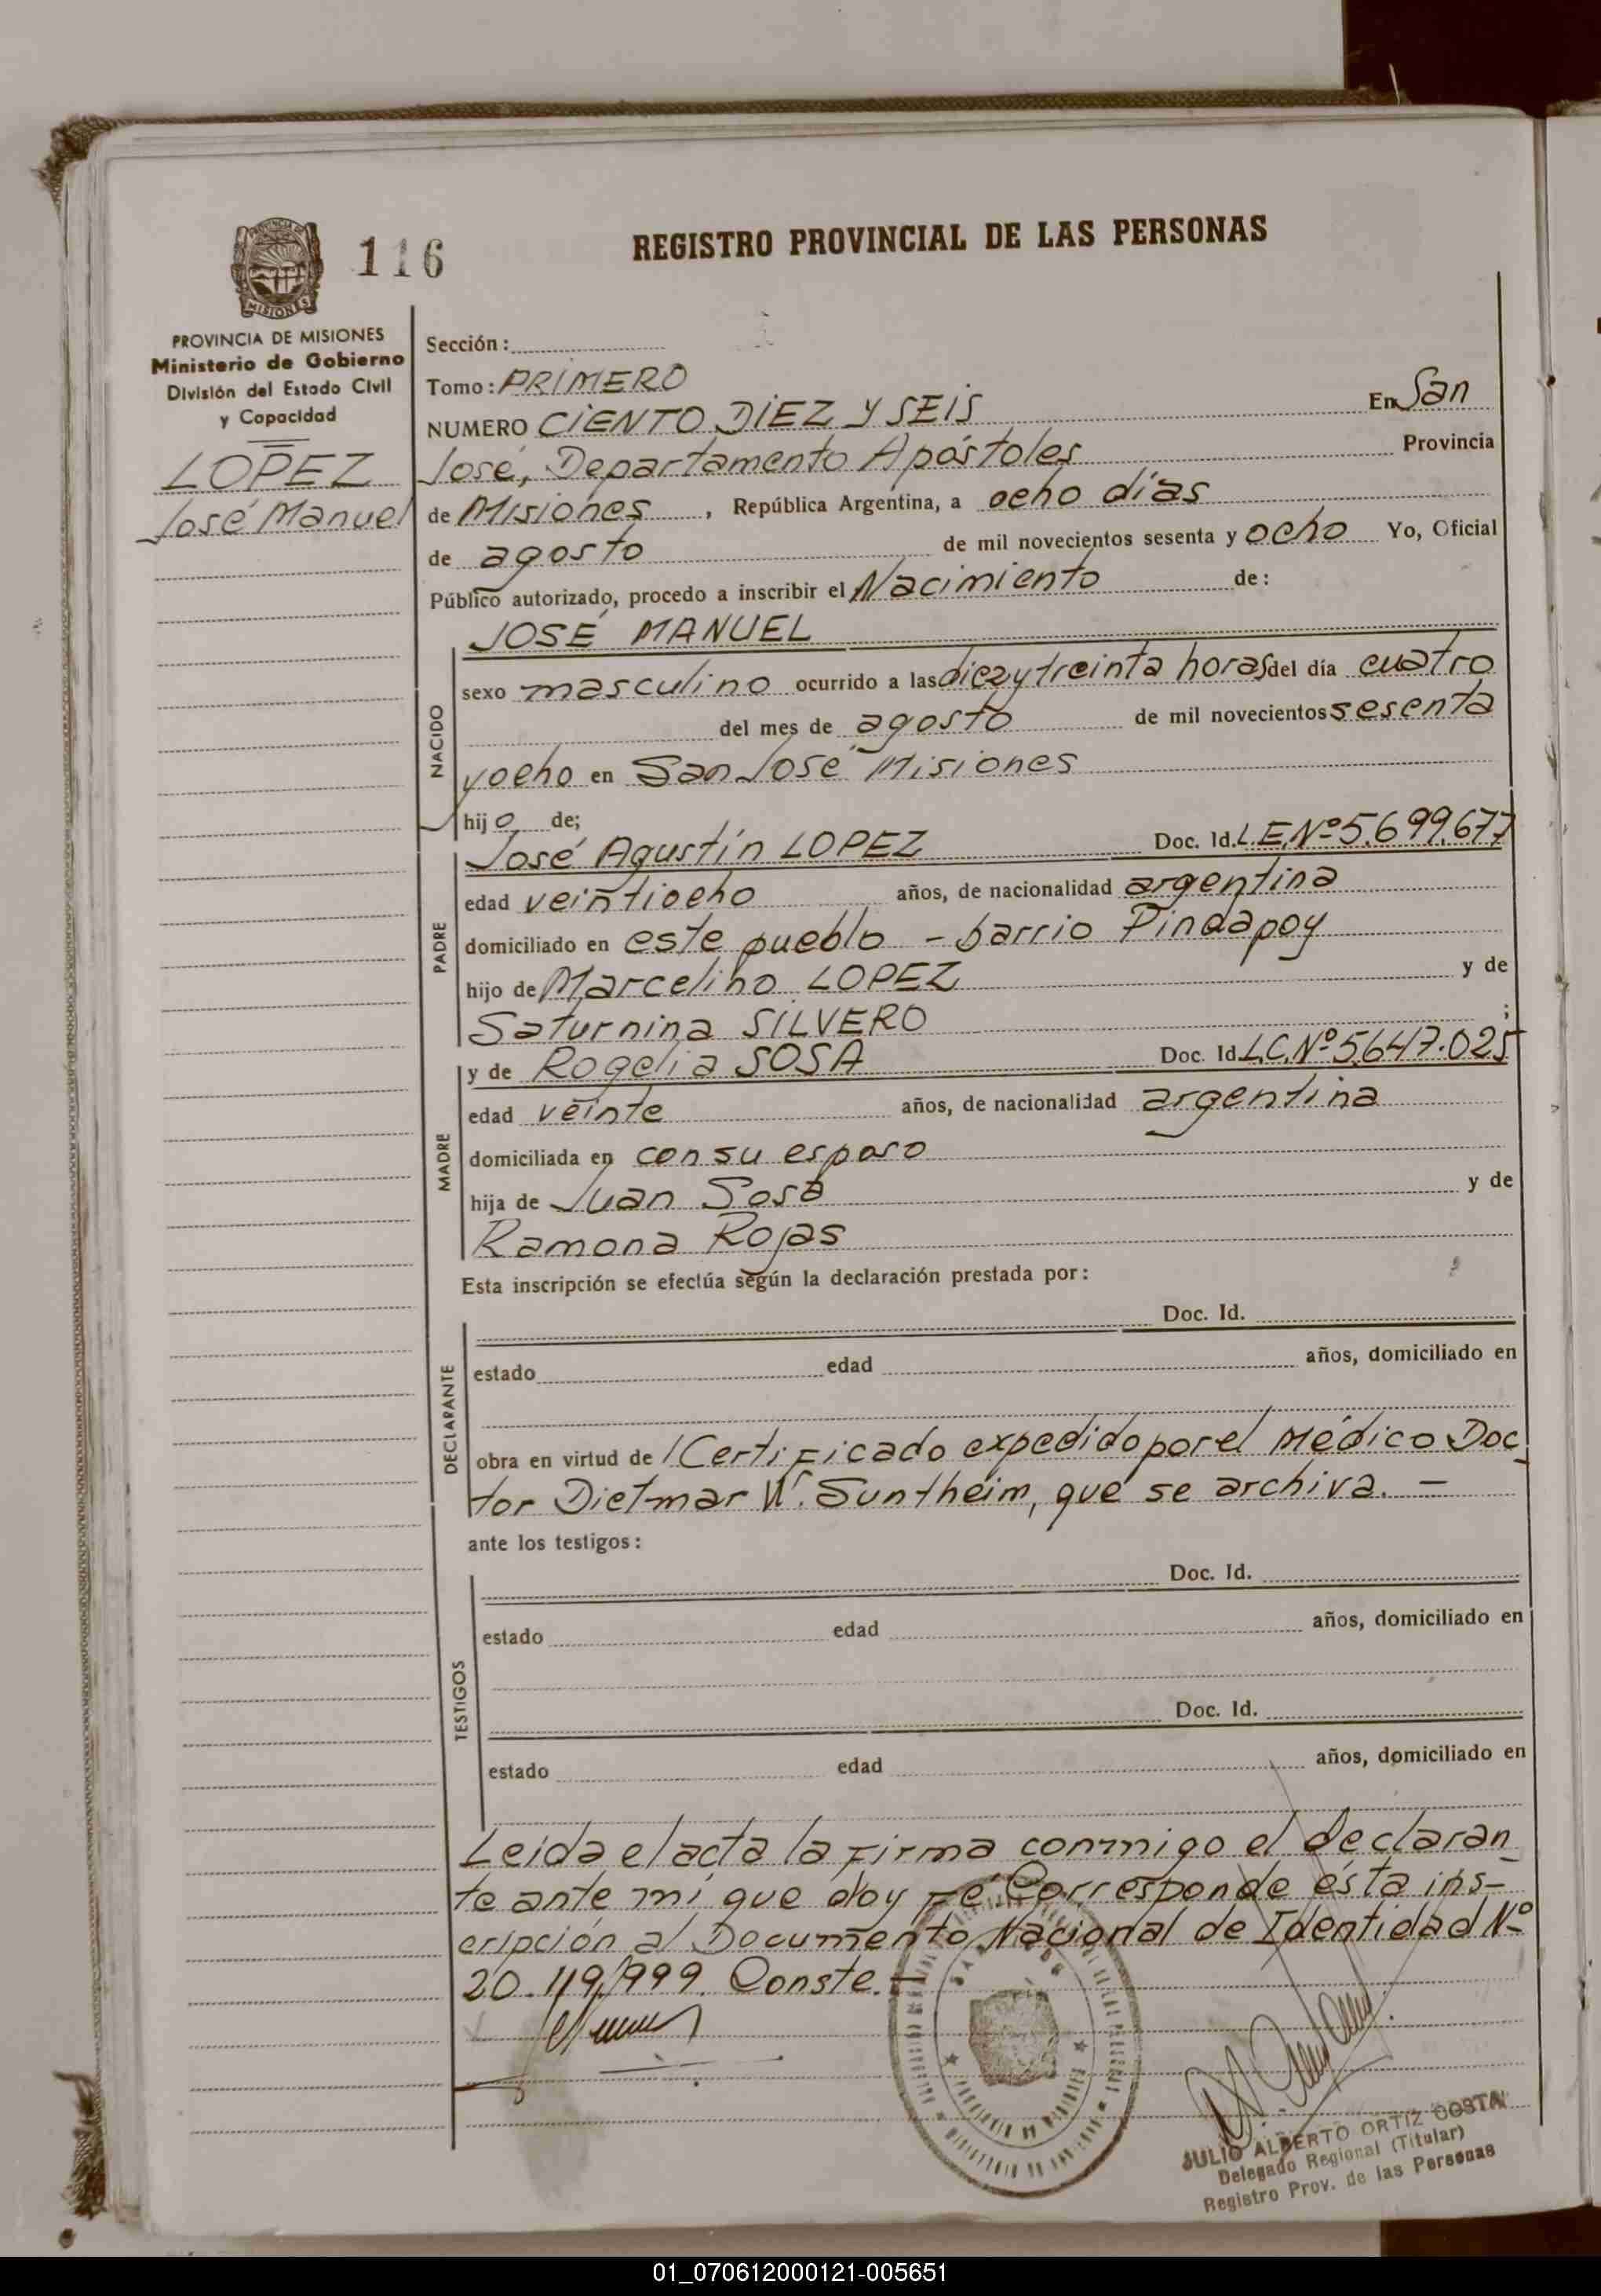 116
REGISTRO PROVINCIAL DE LAS PERSONAS
MISIONES
PROVINCIA DE MISIONES
Ministerio de Gobierno
División del Estado Civil
y Capacidad
LOPEZ
José Manuel
Sección:
Tomo: PRIMERO
NUMERO CIENTO DIEZ Y SEIS En San
José, Departamento Apóstoles Provincia
de Misiones, República Argentina, a ocho días
de agosto de mil novecientos sesenta y ocho Yo, Oficial
Público autorizado, procedo a inscribir el Nacimiento de:
JOSÉ MANUEL
NACIDO
sexo masculino ocurrido a las diez y treinta horas del día cuatro
del mes de agosto de mil novecientos sesenta
y ocho en San José Misiones
hijo de;
PADRE
José Agustín LOPEZ Doc. Id. L.E.Nº 5.699.677
edad veintiocho años, de nacionalidad argentina
domiciliado en este pueblo - barrio Pindapoy
hijo de Marcelino LOPEZ y de
Saturnina SILVERO ;
MADRE
y de Rogelia SOSA Doc. Id L.C.Nº 5.647.025
edad veinte años, de nacionalidad argentina
domiciliada en con su esposo
hija de Juan Sosa y de
Ramona Rojas
Esta inscripción se efectúa según la declaración prestada por:
DECLARANTE
Doc. Id.
estado edad años, domiciliado en
obra en virtud de Certificado expedido por el Médico Doc_
tor Dietmar W. Suntheim, que se archiva. -
ante los testigos:
TESTIGOS
Doc. Id.
estado edad años, domiciliado en
Doc. Id.
estado edad años, domiciliado en
Leida el acta la firma conmigo el declaran_
te ante mi que doy fé Corresponde ésta ins-
cripción al Documento Nacional de Identidad Nº
20.119.999. Conste.-
JULIO ALBERTO ORTIZ COSTA
Delegado Regional (Titular)
Registro Prov. de las Personas
01_070612000121-005651